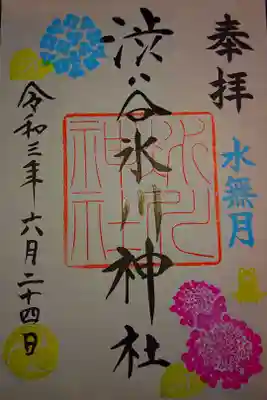 奉拝
水無月
渋谷氷川神社
令和三年六月二十四日
氷川神社